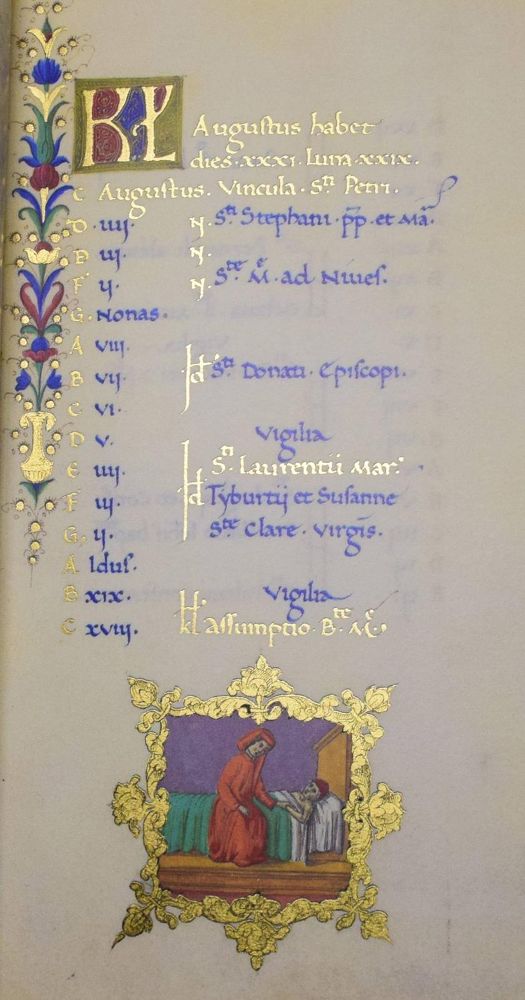 KL Augustus habet
dies · xxxi · Luna · xxix ·
C Augustus · Vincula · Sti Petri ·
D · iiij · N · Sti Stephani · pp · et Ma ·
D iij · N ·
F ij · N · Ste Me · ad Nives ·
G · Nonas ·
A viij ·
B vij · Id Sti Donati · Episcopi ·
C vi ·
D v · Vigilia
E iiij · Sti Laurentii Mar ·
F iij · Id Tyburtij et Susanne
G · ij · Ste Clare · Virgis ·
A Idus ·
B xix · Vigilia
C xviij · kl Assumptio · Bte Me ·